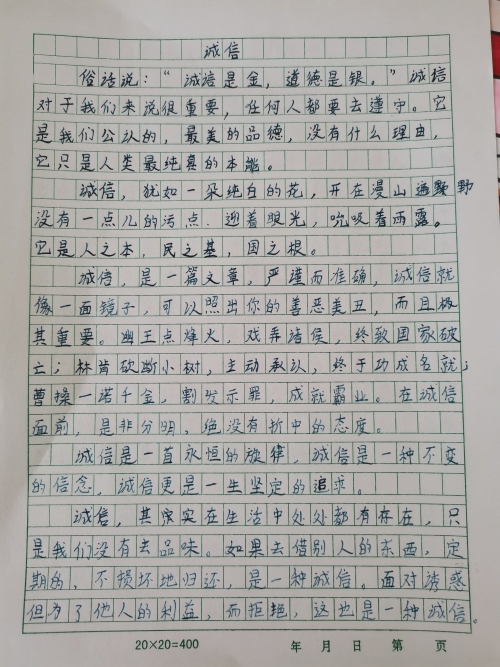 诚信
俗话说："诚信是金,道德是银。"诚信
对于我们来说很重要,任何人都要去遵守。它
是我们公认的,最美的品德,没有什么理由,
它只是人类最纯真的本能。
诚信,犹如一朵纯白的花,开在漫山遍野
没有一点儿的污点.迎着眼光,吮吸着雨露。
它是人之本,民之基,国之根。
诚信,是一篇文章,严谨而准确,诚信就
像一面镜子,可以照出你的善恶美丑,而且极
其重要。幽王点烽火,戏弄诸侯,终致国家破
亡;林肯砍断小树,主动承认,终于功成名就;
曹操一诺千金,割发示罪,成就霸业。在诚信
面前,是非分明,绝没有折中的态度。
诚信是一首永恒的旋律,诚信是一种不变
的信念,诚信更是一生坚定的追求。
诚信,其实实在生活中处处都有存在,只
是我们没有去品味。如果去借别人的东西,定
期的,不损坏地归还,是一种诚信。面对诱惑
但为了他人的利益,而拒绝,这也是一种诚信。
20×20=400 年 月 日 第 页